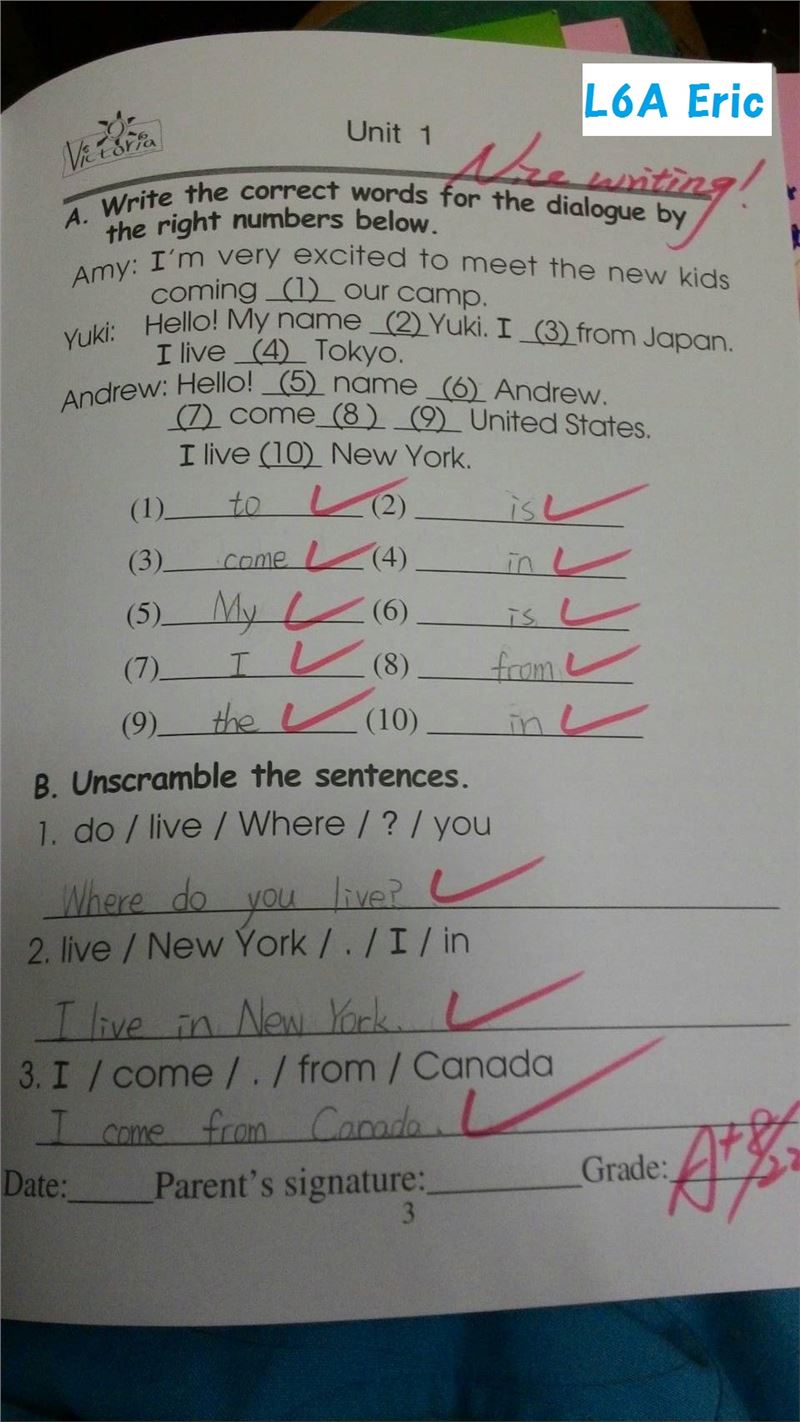 L6A Eric
Victoria
Unit 1
Nice writing!
A. Write the correct words for the dialogue by
the right numbers below.
Amy: I'm very excited to meet the new kids
coming (1) our camp.
Yuki: Hello! My name (2) Yuki. I (3) from Japan.
I live (4) Tokyo.
Andrew: Hello! (5) name (6) Andrew.
(7) come (8) (9) United States.
I live (10) New York.
(1) to (2) is
(3) come (4) in
(5) My (6) is
(7) I (8) from
(9) the (10) in
B. Unscramble the sentences.
1. do / live / Where / ? / you
Where do you live?
2. live / New York / . / I / in
I live in New York.
3. I / come / . / from / Canada
I come from Canada.
Date: Parent's signature: Grade: A+ 8/22
3